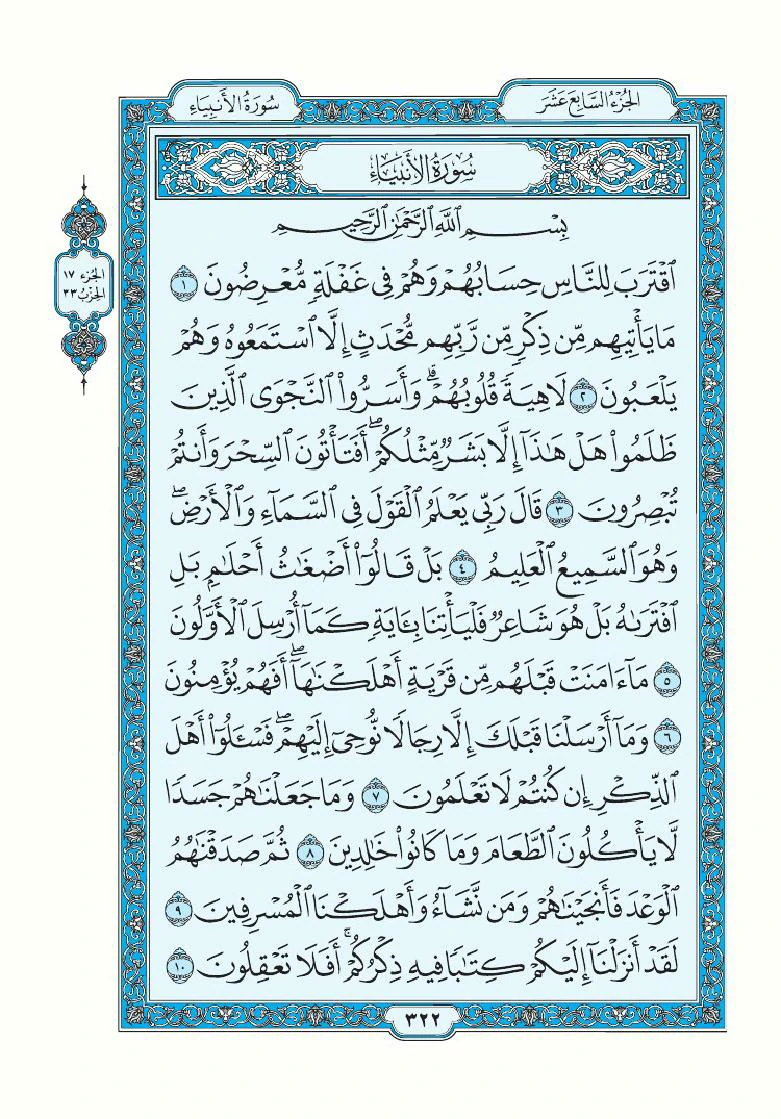 الجُزْءُ السَّابِعَ عَشَرَ
سُورَةُ الأَنبِيَاءِ
سُورَةُ الأَنبِيَاءِ
الجزء ١٧
الحزب ٣٣
بِسْمِ ٱللَّهِ ٱلرَّحْمَٰنِ ٱلرَّحِيمِ
ٱقْتَرَبَ لِلنَّاسِ حِسَابُهُمْ وَهُمْ فِى غَفْلَةٍ مُّعْرِضُونَ ١
مَا يَأْتِيهِم مِّن ذِكْرٍ مِّن رَّبِّهِم مُّحْدَثٍ إِلَّا ٱسْتَمَعُوهُ وَهُمْ
يَلْعَبُونَ ٢ لَاهِيَةً قُلُوبُهُمْ ۗ وَأَسَرُّوا۟ ٱلنَّجْوَى ٱلَّذِينَ
ظَلَمُوا۟ هَلْ هَٰذَآ إِلَّا بَشَرٌ مِّثْلُكُمْ ۖ أَفَتَأْتُونَ ٱلسِّحْرَ وَأَنتُمْ
تُبْصِرُونَ ٣ قَالَ رَبِّى يَعْلَمُ ٱلْقَوْلَ فِى ٱلسَّمَآءِ وَٱلْأَرْضِ ۖ
وَهُوَ ٱلسَّمِيعُ ٱلْعَلِيمُ ٤ بَلْ قَالُوٓا۟ أَضْغَٰثُ أَحْلَٰمٍۭ بَلِ
ٱفْتَرَىٰهُ بَلْ هُوَ شَاعِرٌ فَلْيَأْتِنَا بِـَٔايَةٍ كَمَآ أُرْسِلَ ٱلْأَوَّلُونَ
٥ مَآ ءَامَنَتْ قَبْلَهُم مِّن قَرْيَةٍ أَهْلَكْنَٰهَآ ۖ أَفَهُمْ يُؤْمِنُونَ
٦ وَمَآ أَرْسَلْنَا قَبْلَكَ إِلَّا رِجَالًا نُّوحِىٓ إِلَيْهِمْ ۖ فَسْـَٔلُوٓا۟ أَهْلَ
ٱلذِّكْرِ إِن كُنتُمْ لَا تَعْلَمُونَ ٧ وَمَا جَعَلْنَٰهُمْ جَسَدًا
لَّا يَأْكُلُونَ ٱلطَّعَامَ وَمَا كَانُوا۟ خَٰلِدِينَ ٨ ثُمَّ صَدَقْنَٰهُمُ
ٱلْوَعْدَ فَأَنجَيْنَٰهُمْ وَمَن نَّشَآءُ وَأَهْلَكْنَا ٱلْمُسْرِفِينَ ٩
لَقَدْ أَنزَلْنَآ إِلَيْكُمْ كِتَٰبًا فِيهِ ذِكْرُكُمْ ۖ أَفَلَا تَعْقِلُونَ ١٠
٣٢٢